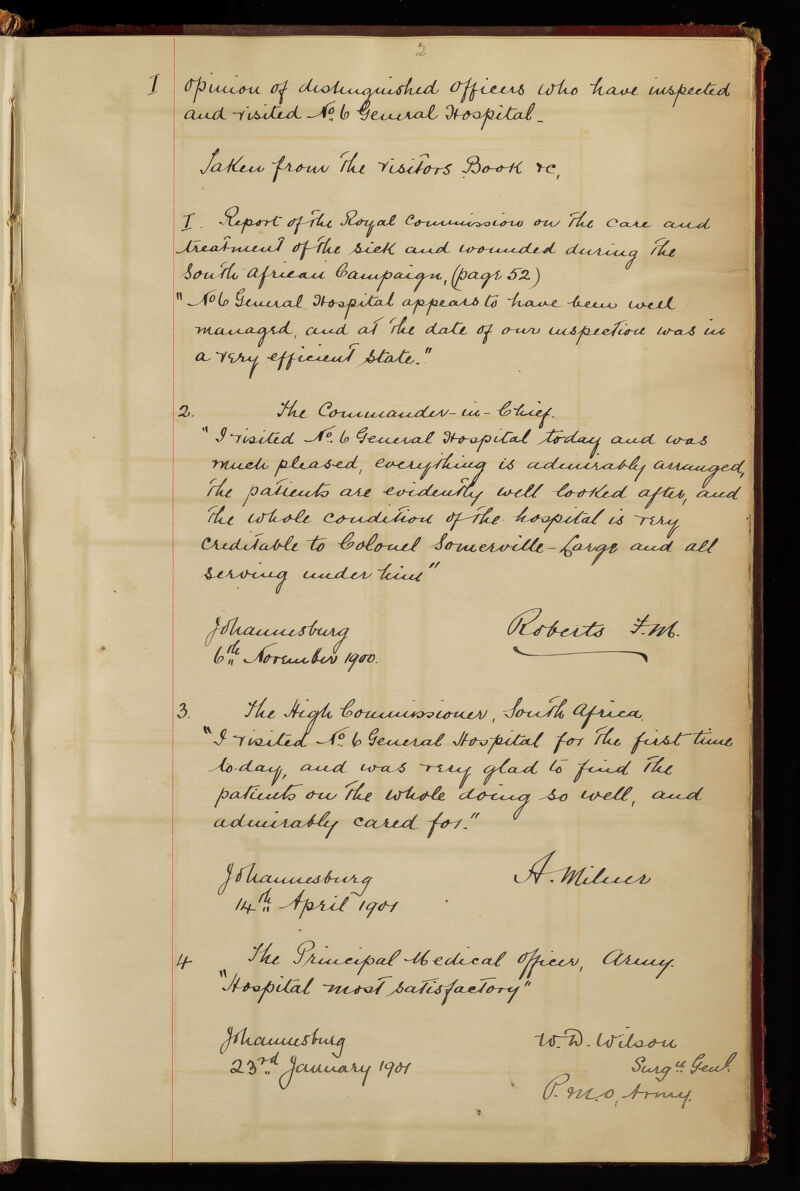 2
I Opinion of distinguished Officers who have inspected
and visited No. 6 General Hospital.
Taken from the Visitors Book &c,
I. Report of the Royal Commission on the care and
treatment of the sick and wounded during the
South African Campaign, (page 52)
"No 6 General Hospital appears to have been well
managed, and at the date of our inspection was in
a very efficient state."
2. The Commander-in-Chief.
"I visited No. 6 General Hospital today and was
much pleased, everything is admirably arranged,
the patients are evidently well looked after, and
the whole condition of the hospital is very
creditable to Colonel Somerville-Large and all
serving under him"
Johannesburg Roberts F.M.
6th November 1900.
3. The High Commissioner, South Africa.
"I visited No. 6 General Hospital for the first time
to-day, and was very glad to find the
patients on the whole doing so well, and
admirably cared for."
Johannesburg A. Milner
14th April 1901
4 The Principal Medical Officer, Army.
"Hospital most satisfactory"
Johannesburg W. D. Wilson
23rd January 1901 Surgn. Genl.
P.M.O, Army.